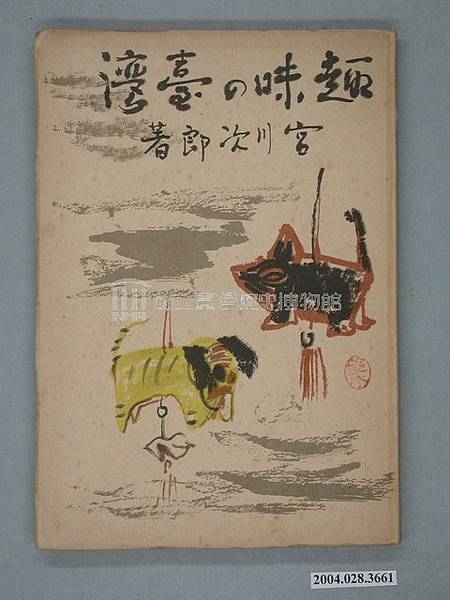 趣味の臺灣
宮川次郎著
國立臺灣歷史博物館
2004.028.3661